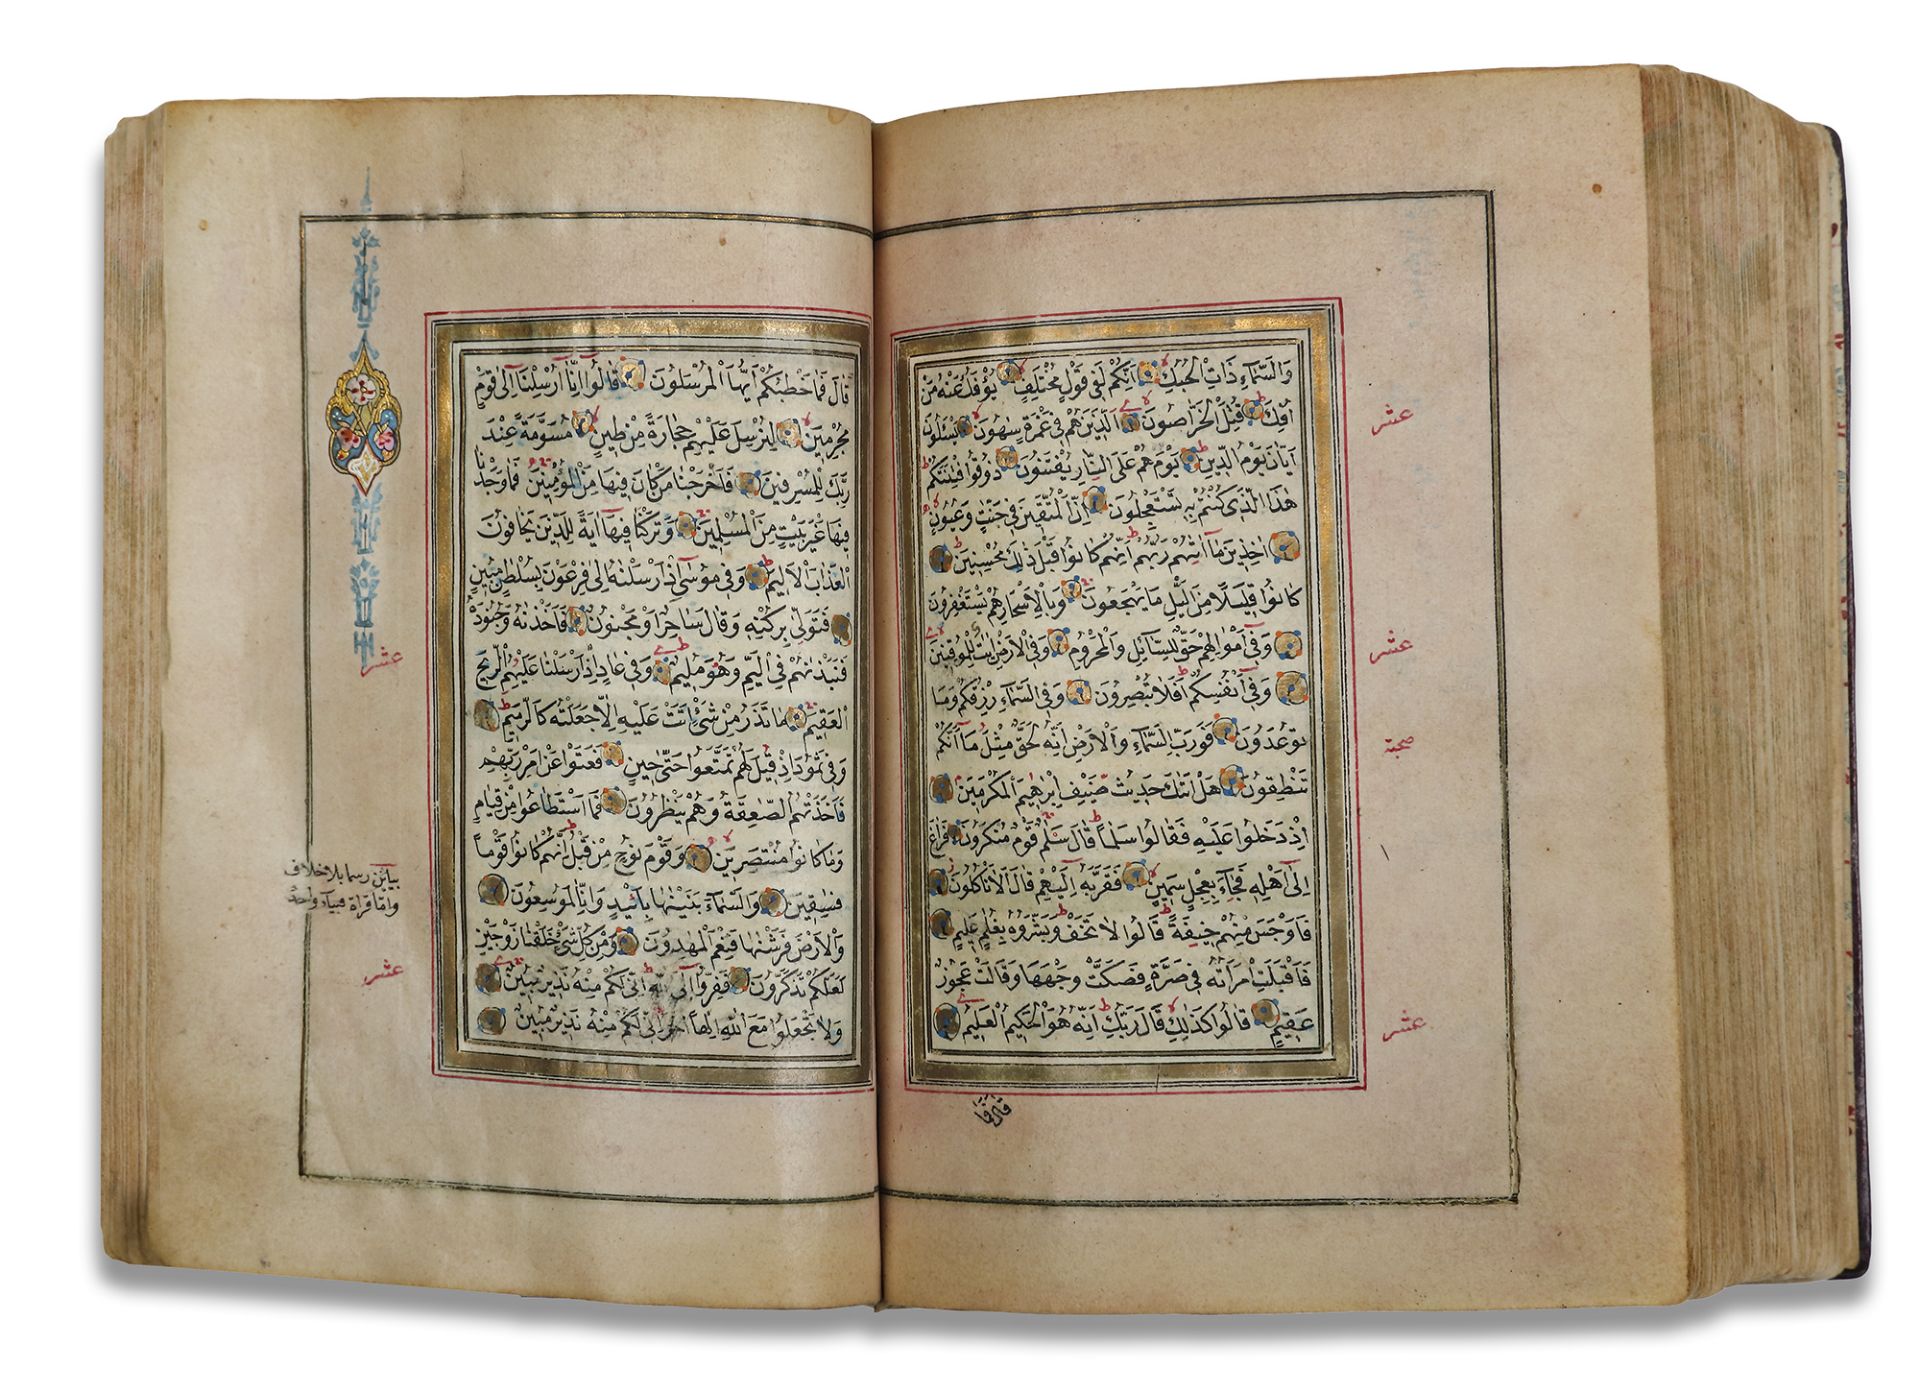 وَالسَّمَاءِ ذَاتِ الْحُبُكِ اِنَّكُمْ لَفِي قَوْلٍ مُخْتَلِفٍ يُؤْفَكُ عَنْهُ مَنْ
اُفِكَ قُتِلَ الْخَرَّاصُونَ اَلَّذِينَ هُمْ فِي غَمْرَةٍ سَاهُونَ يَسْئَلُونَ
اَيَّانَ يَوْمُ الدِّينِ يَوْمَ هُمْ عَلَى النَّارِ يُفْتَنُونَ ذُوقُوا فِتْنَتَكُمْ
هٰذَا الَّذِي كُنْتُمْ بِهِ تَسْتَعْجِلُونَ اِنَّ الْمُتَّقِينَ فِي جَنَّاتٍ وَعُيُونٍ
اٰخِذِينَ مَا اٰتٰيهُمْ رَبُّهُمْ اِنَّهُمْ كَانُوا قَبْلَ ذٰلِكَ مُحْسِنِينَ
كَانُوا قَلِيلًا مِنَ الَّيْلِ مَا يَهْجَعُونَ وَبِالْاَسْحَارِ هُمْ يَسْتَغْفِرُونَ
وَفِي اَمْوَالِهِمْ حَقٌّ لِلسَّائِلِ وَالْمَحْرُومِ وَفِي الْاَرْضِ اٰيَاتٌ لِلْمُوقِنِينَ
وَفِي اَنْفُسِكُمْ اَفَلَا تُبْصِرُونَ وَفِي السَّمَاءِ رِزْقُكُمْ وَمَا
تُوعَدُونَ فَوَرَبِّ السَّمَاءِ وَالْاَرْضِ اِنَّهُ لَحَقٌّ مِثْلَ مَا اَنَّكُمْ
تَنْطِقُونَ هَلْ اَتٰيكَ حَدِيثُ ضَيْفِ اِبْرٰهِيمَ الْمُكْرَمِينَ
اِذْ دَخَلُوا عَلَيْهِ فَقَالُوا سَلَامًا قَالَ سَلَامٌ قَوْمٌ مُنْكَرُونَ فَرَاغَ
اِلٰى اَهْلِهِ فَجَاءَ بِعِجْلٍ سَمِينٍ فَقَرَّبَهُ اِلَيْهِمْ قَالَ اَلَا تَأْكُلُونَ
فَاَوْجَسَ مِنْهُمْ خِيفَةً قَالُوا لَا تَخَفْ وَبَشَّرُوهُ بِغُلَامٍ عَلِيمٍ
فَاَقْبَلَتِ امْرَاَتُهُ فِي صَرَّةٍ فَصَكَّتْ وَجْهَهَا وَقَالَتْ عَجُوزٌ
عَقِيمٌ قَالُوا كَذٰلِكِ قَالَ رَبُّكِ اِنَّهُ هُوَ الْحَكِيمُ الْعَلِيمُ
عشر
عشر
صحبة
عشر
قَالَ فَمَا
قَالَ فَمَا خَطْبُكُمْ اَيُّهَا الْمُرْسَلُونَ قَالُوا اِنَّا اُرْسِلْنَا اِلٰى قَوْمٍ
مُجْرِمِينَ لِنُرْسِلَ عَلَيْهِمْ حِجَارَةً مِنْ طِينٍ مُسَوَّمَةً عِنْدَ
رَبِّكَ لِلْمُسْرِفِينَ فَاَخْرَجْنَا مَنْ كَانَ فِيهَا مِنَ الْمُؤْمِنِينَ فَمَا وَجَدْنَا
فِيهَا غَيْرَ بَيْتٍ مِنَ الْمُسْلِمِينَ وَتَرَكْنَا فِيهَا اٰيَةً لِلَّذِينَ يَخَافُونَ
الْعَذَابَ الْاَلِيمَ وَفِي مُوسٰى اِذْ اَرْسَلْنَاهُ اِلٰى فِرْعَوْنَ بِسُلْطَانٍ مُبِينٍ
فَتَوَلّٰى بِرُكْنِهِ وَقَالَ سَاحِرٌ اَوْ مَجْنُونٌ فَاَخَذْنَاهُ وَجُنُودَهُ
فَنَبَذْنَاهُمْ فِي الْيَمِّ وَهُوَ مُلِيمٌ وَفِي عَادٍ اِذْ اَرْسَلْنَا عَلَيْهِمُ الرِّيحَ
الْعَقِيمَ مَا تَذَرُ مِنْ شَيْءٍ اَتَتْ عَلَيْهِ اِلَّا جَعَلَتْهُ كَالرَّمِيمِ
وَفِي ثَمُودَ اِذْ قِيلَ لَهُمْ تَمَتَّعُوا حَتّٰى حِينٍ فَعَتَوْا عَنْ اَمْرِ رَبِّهِمْ
فَاَخَذَتْهُمُ الصَّاعِقَةُ وَهُمْ يَنْظُرُونَ فَمَا اسْتَطَاعُوا مِنْ قِيَامٍ
وَمَا كَانُوا مُنْتَصِرِينَ وَقَوْمَ نُوحٍ مِنْ قَبْلُ اِنَّهُمْ كَانُوا قَوْمًا
فَاسِقِينَ وَالسَّمَاءَ بَنَيْنَاهَا بِاَيْيدٍ وَاِنَّا لَمُوسِعُونَ
وَالْاَرْضَ فَرَشْنَاهَا فَنِعْمَ الْمَاهِدُونَ وَمِنْ كُلِّ شَيْءٍ خَلَقْنَا زَوْجَيْنِ
لَعَلَّكُمْ تَذَكَّرُونَ فَفِرُّوا اِلَى اللّٰهِ اِنِّي لَكُمْ مِنْهُ نَذِيرٌ مُبِينٌ
وَلَا تَجْعَلُوا مَعَ اللّٰهِ اِلٰهًا اٰخَرَ اِنِّي لَكُمْ مِنْهُ نَذِيرٌ مُبِينٌ
عشر
بيائين رسما بلا خلاف
واما قراة فبياء واحدة
عشر